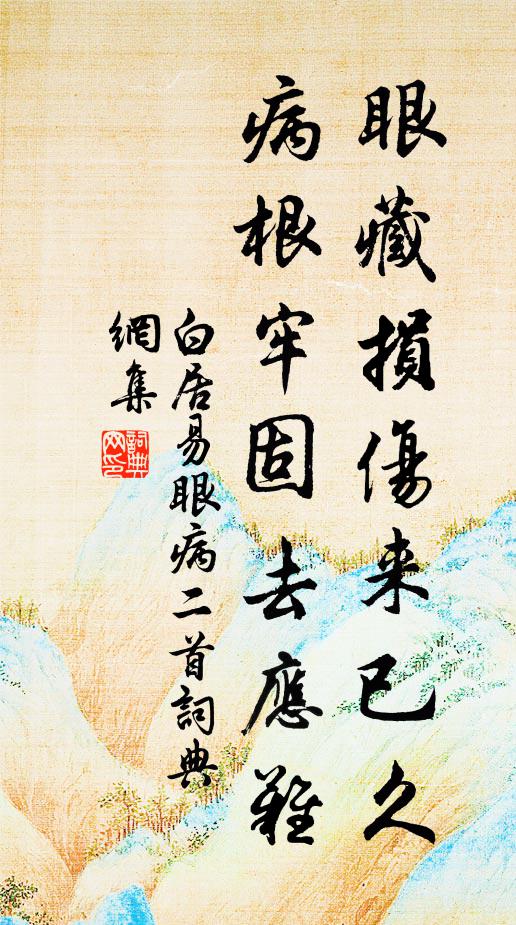 眼藏損傷来已久
病根牢固去應難
白居易眼病二首詞典
網集
詞典
网印